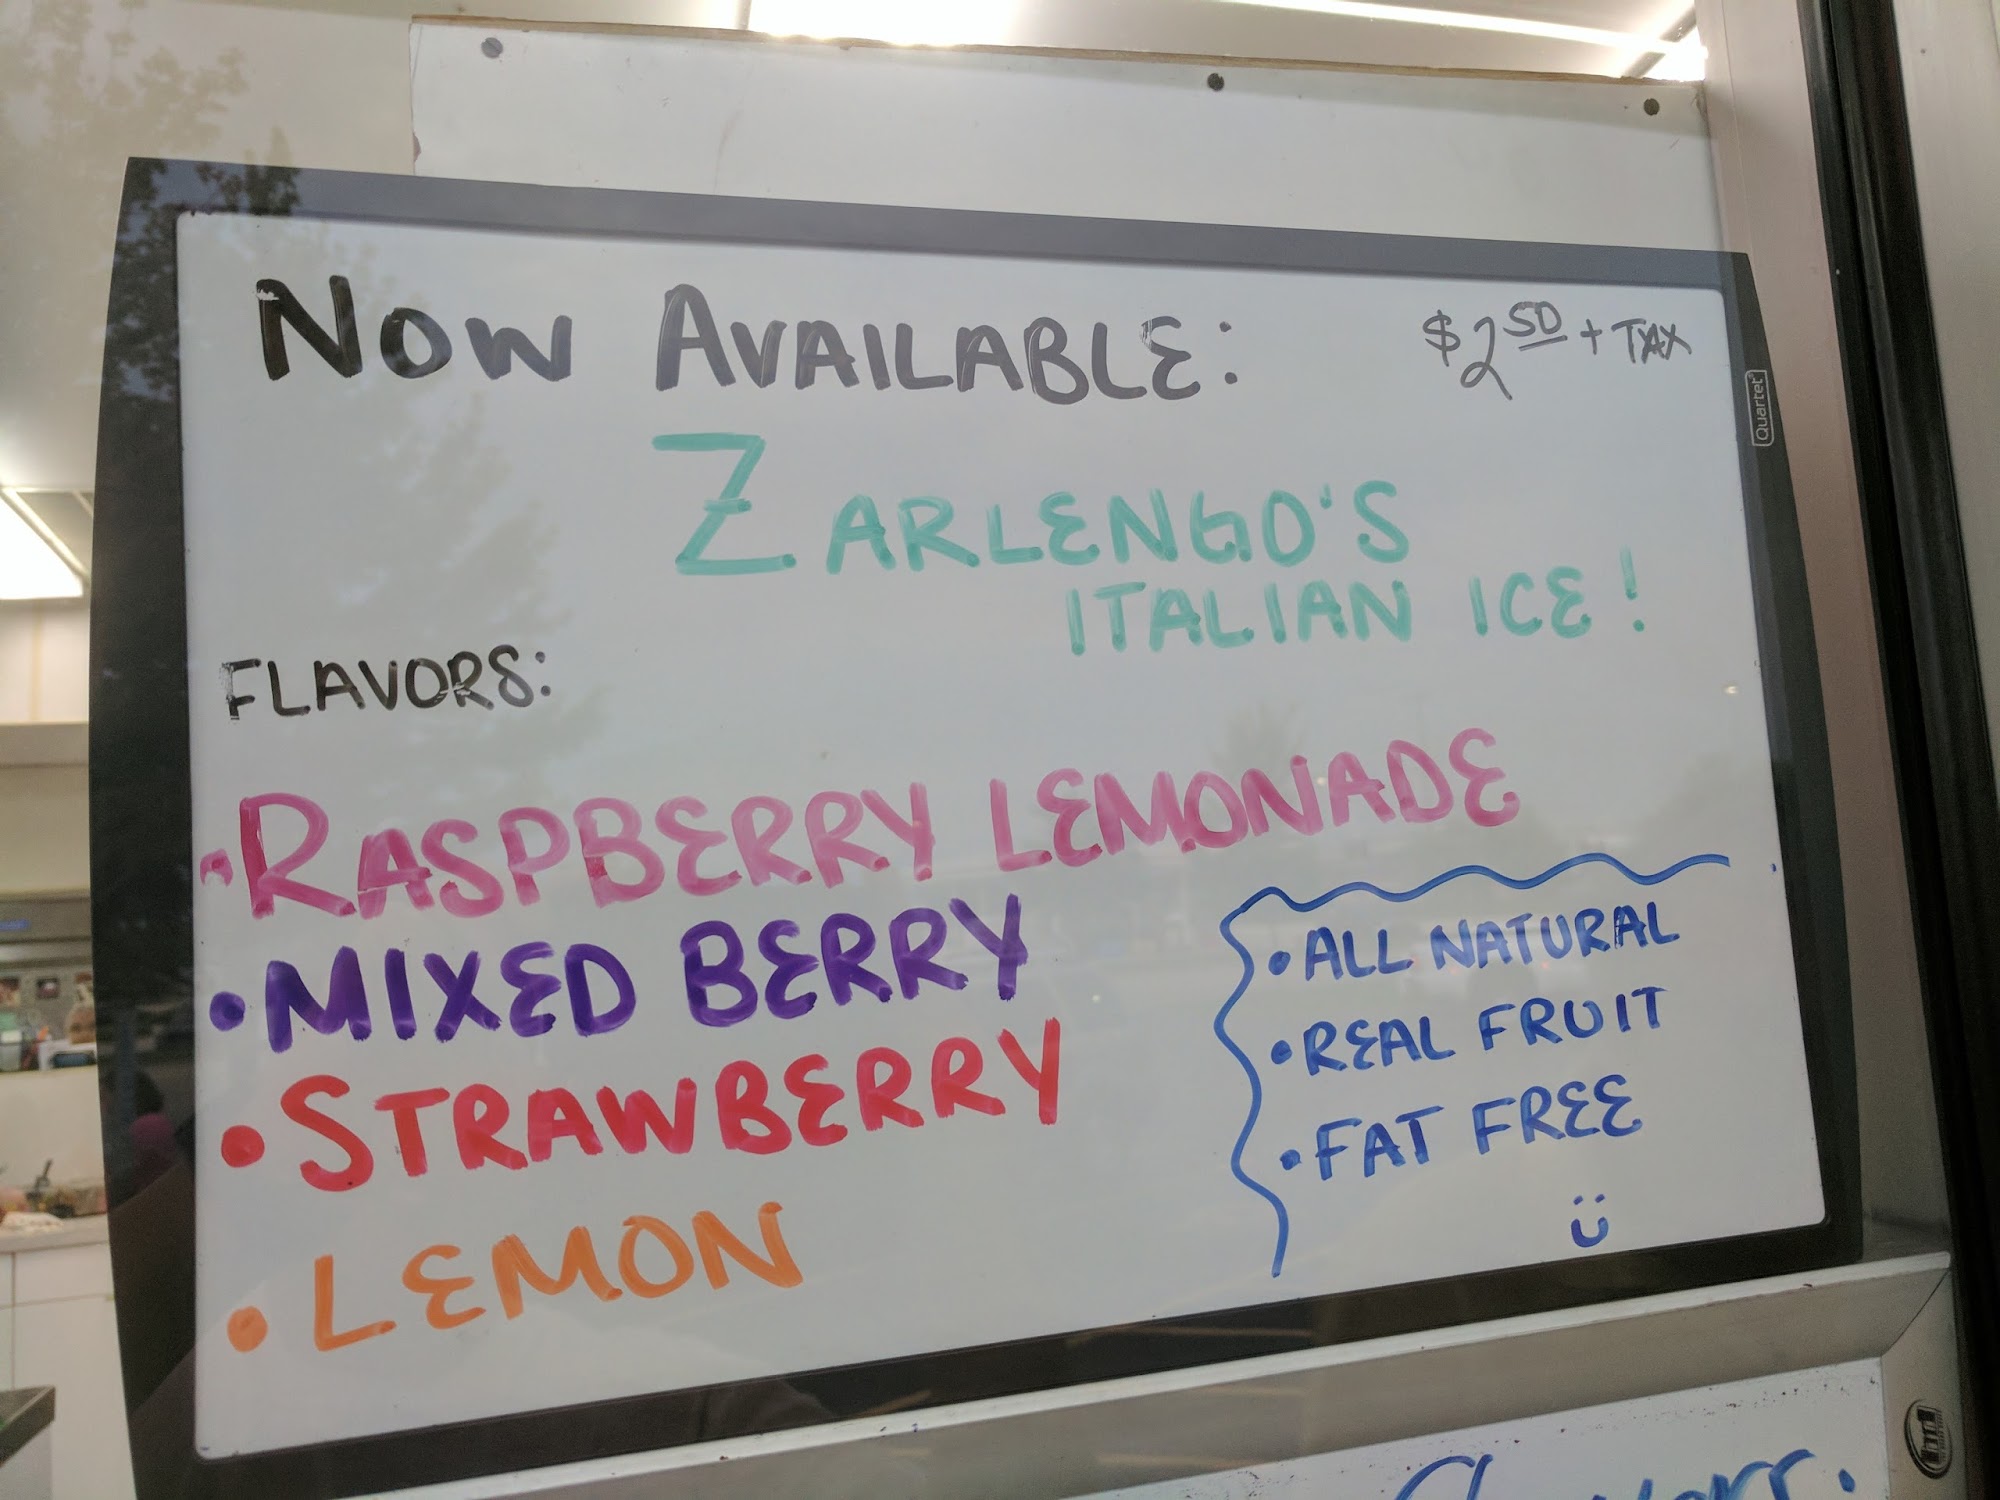 NOW AVAILABLE:
$2.50 + TAX
ZARLENGO'S
ITALIAN ICE!
FLAVORS:
• RASPBERRY LEMONADE
• MIXED BERRY
• STRAWBERRY
• LEMON
• ALL NATURAL
• REAL FRUIT
• FAT FREE
Quartet